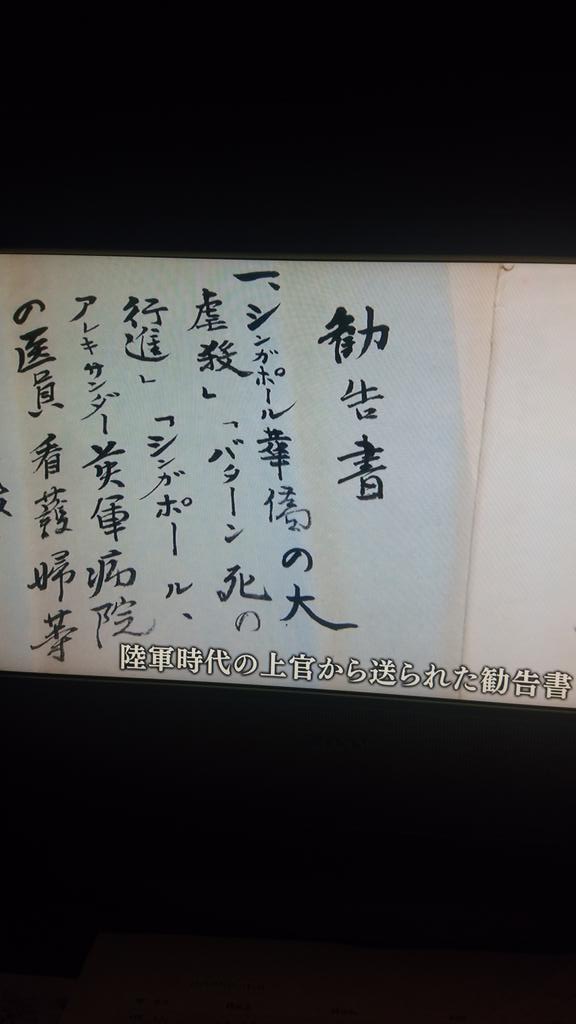 勧告書
一、シンガポール華僑の大
虐殺」「バターン死の
行進」「シンガポール、
アレキサンダー英軍病院
の医員看護婦等
陸軍時代の上官から送られた勧告書